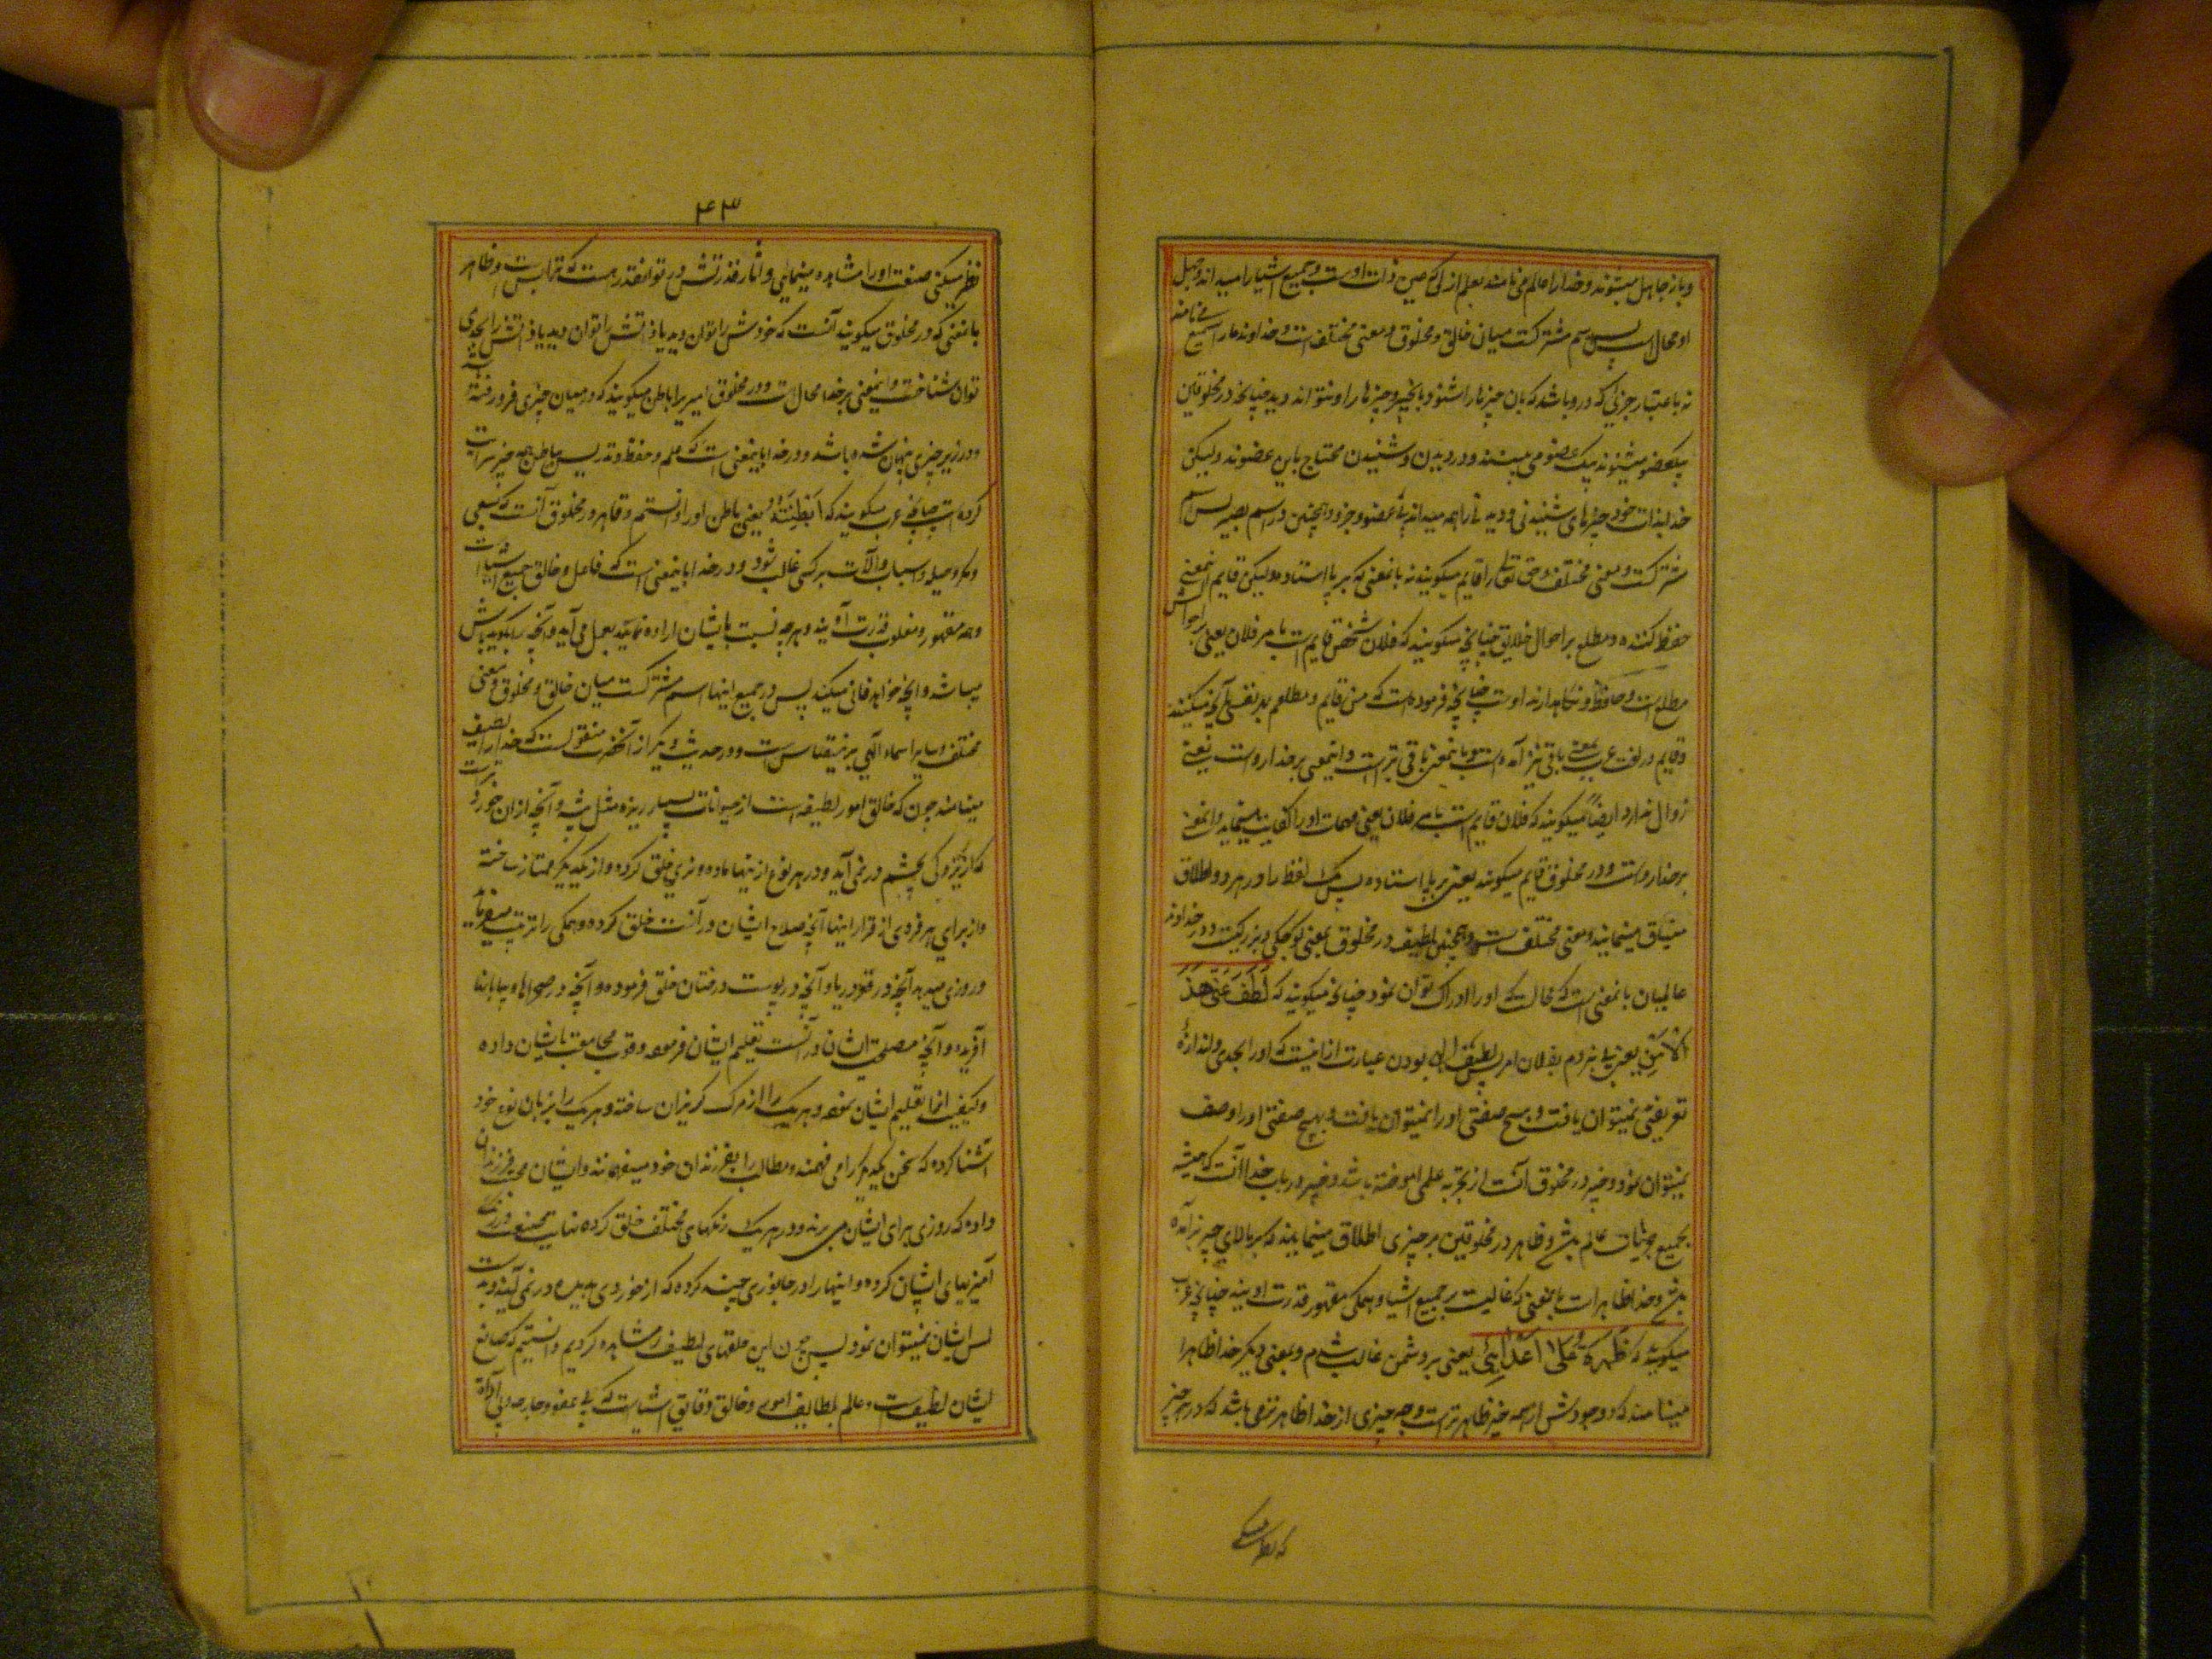 و باز جاهل میشوند و خدا را عالم می‌نامند بعلم ازلی که عین ذات اوست و جمیع اشیا را میداند و جهل
او محال است پس اسم مشترکست میان خالق و مخلوق و معنی مختلف است و خداوند ما را سمیع می‌نامند
نه باعتبار جزئی که درو باشد که بان چیزها را شنود و بانجزو چیزها را و نتواند دید چنانچه در مخلوقین
بیکعضو میشنوند بیک عضو می بینند و در دیدن و شنیدن محتاج باین عضوند ولیکن
خدا بذات خود چیزهای شنیدنی و دیدنی را همه میداند بی عضو و جزو و همچنین در اسم بصیر پس اسم
مشترکست و معنی مختلف و حق تعالی را قایم میگویند نه بانمعنی که بر پا استاده ولیکن قایم است بمعنی
حفظ کننده و مطلع بر احوال خلایق چنانچه میگویند که فلان شخص قایم است بامر فلان یعنی بر احوالش
مطلع است و حافظ و نگاهدارنده اوست چنانچه فرموده است که من قایم و مطلعم بهر نفسی بآنچه میکنند
و قایم در لغت عرب بمعنی باقی نیز آمده است و باینمعنی باقی تر است و اینمعنی بر خدا رواست یعنی
زوال ندارد ایضاً میگویند که فلان قایم است بامر فلان یعنی مهمات او را کفایت مینماید و اینمعنی
بر خدا رواست و در مخلوق قایم میگویند یعنی بر پا استاده پس یک لفظ را در هر دو اطلاق
مینمایند و معنی مختلف است و همچنین لطیف در مخلوق بمعنی کوچکی و بزرگیست و در خداوند
عالمیان بانمعنی است که محالست که او را ادراک توان نمود چنانچه میگویند که لَطُفَ عَنّی هذَا
الاَمْر یعنی پی نبردم بفلان امر پس لطیف اله بودن عبارت از اینست که او را بحدی و اندازهٔ
تعریفی نمیتوان یافت و بهیچ صفتی او را نمیتوان یافت و بهیچ صفتی او را وصف
نمیتوان نمود و خبیر در مخلوق آنست از تجربه علمی اموخته باشد و خبیر در باب خدا آنست که همیشه
بجمیع چیزها عالم باشد و ظاهر در مخلوقین بر چیزی اطلاق مینمایند که بر بالای چیز برآمده
باشد و خدا ظاهر است بانمعنی که غالبست بر جمیع اشیا و همگی مقهور قدرت اویند چنانچه عرب
میگویند که ظَهَرْتُ عَلیٰ اَعْدَائِی یعنی بر دشمن غالب شدم و بمعنی دیگر خدا ظاهر را
مینامند که وجودش از همه چیز ظاهرتر است و چه چیزی از خدا ظاهرتر می باشد که در هر چیز
که نظر میکنی
۴۳
نظر میکنی صنعت او را مشاهده مینمایی و آثار قدرتش در تو انقدر هست که تو را بس است و ظاهر
بانمعنی که در مخلوق میگویند آنست که خودش را توان دید یا ذاتش را توان دید یا ذاتش را بحدی
توان شناخت و اینمعنی بر خدا محال است و در مخلوق امیر را باطن میگویند که در میان چیزی فرو رفته
و در زیر چیزی پنهان شده باشد و در خدا باینمعنی است که علم و حفظ و تدبیرش بباطن همه چیز سرایت
کرده است چنانچه عرب میگویند که اَبْطَنْتُهُ یعنی باطن او را دانستم و قاهر در مخلوق آنست که سعی
و مکر و حیله و اسباب و آلات بر کسی غالب شود و در خدا باینمعنی است که فاعل و خالق جمیع اشیاست
و همه مقهور و مغلوب قدرت اویند و هر چه نسبت بایشان اراده نماید بعمل می آید و آنچه را بگوید باش
میباشد و آنچه خواهد فانی میکند پس در جمیع اینها اسم مشترکست میان خالق و مخلوق و معنی
مختلف و سایر اسماء الهی برینقیاس است و در حدیث دیگر از آنحضرت منقولست که خدا را لطیف
مینامند چون که خالق امور لطیفه است از حیوانات بسیار ریزه مثل پشه و آنچه از ان خوردتر است
که از ریزه‌گی بچشم در نمی آید و در هر نوع از اینها ماده و نری خلق کرده و از یکدیگر ممتاز ساخته
و از برای هر فردی از افراد اینها آنچه صلاح ایشان در آنست خلق کرده و همگی را تربیت میفرماید
و روزی میدهد آنچه در قعر دریا و آنچه در پوست درختان خلق فرموده و آنچه در صحراها و بیابانها
آفریده و آنچه مصلحت ایشان در آنست تعلیم ایشان فرموده و قوت مجامعت بایشان داده
و کیفیت انرا تعلیم ایشان نموده و هر یک را از مرگ گریزان ساخته و هر یک را بزبان نوع خود
آشنا کرده که سخن یکدیگر را می فهمند و مطالب را بفرزندان خود میفهمانند و ایشان محبت فرزندان
داده که روزی برای ایشان می برند و در هر یک رنگهای مختلف خلق کرده
آمیزیهای ایشان کرده و اینها را در جانوری چند کرده که از خوردی بدیده در نمی آیند و بدست
لمس ایشان نمیتوان نمود پس چون این خلقهای لطیف را مشاهده کردیم دانستیم که صانع
ایشان لطیف است و عالم بلطایف امور و خالق دقایق اشیاست که بی عضو و جارحه و بی آلت